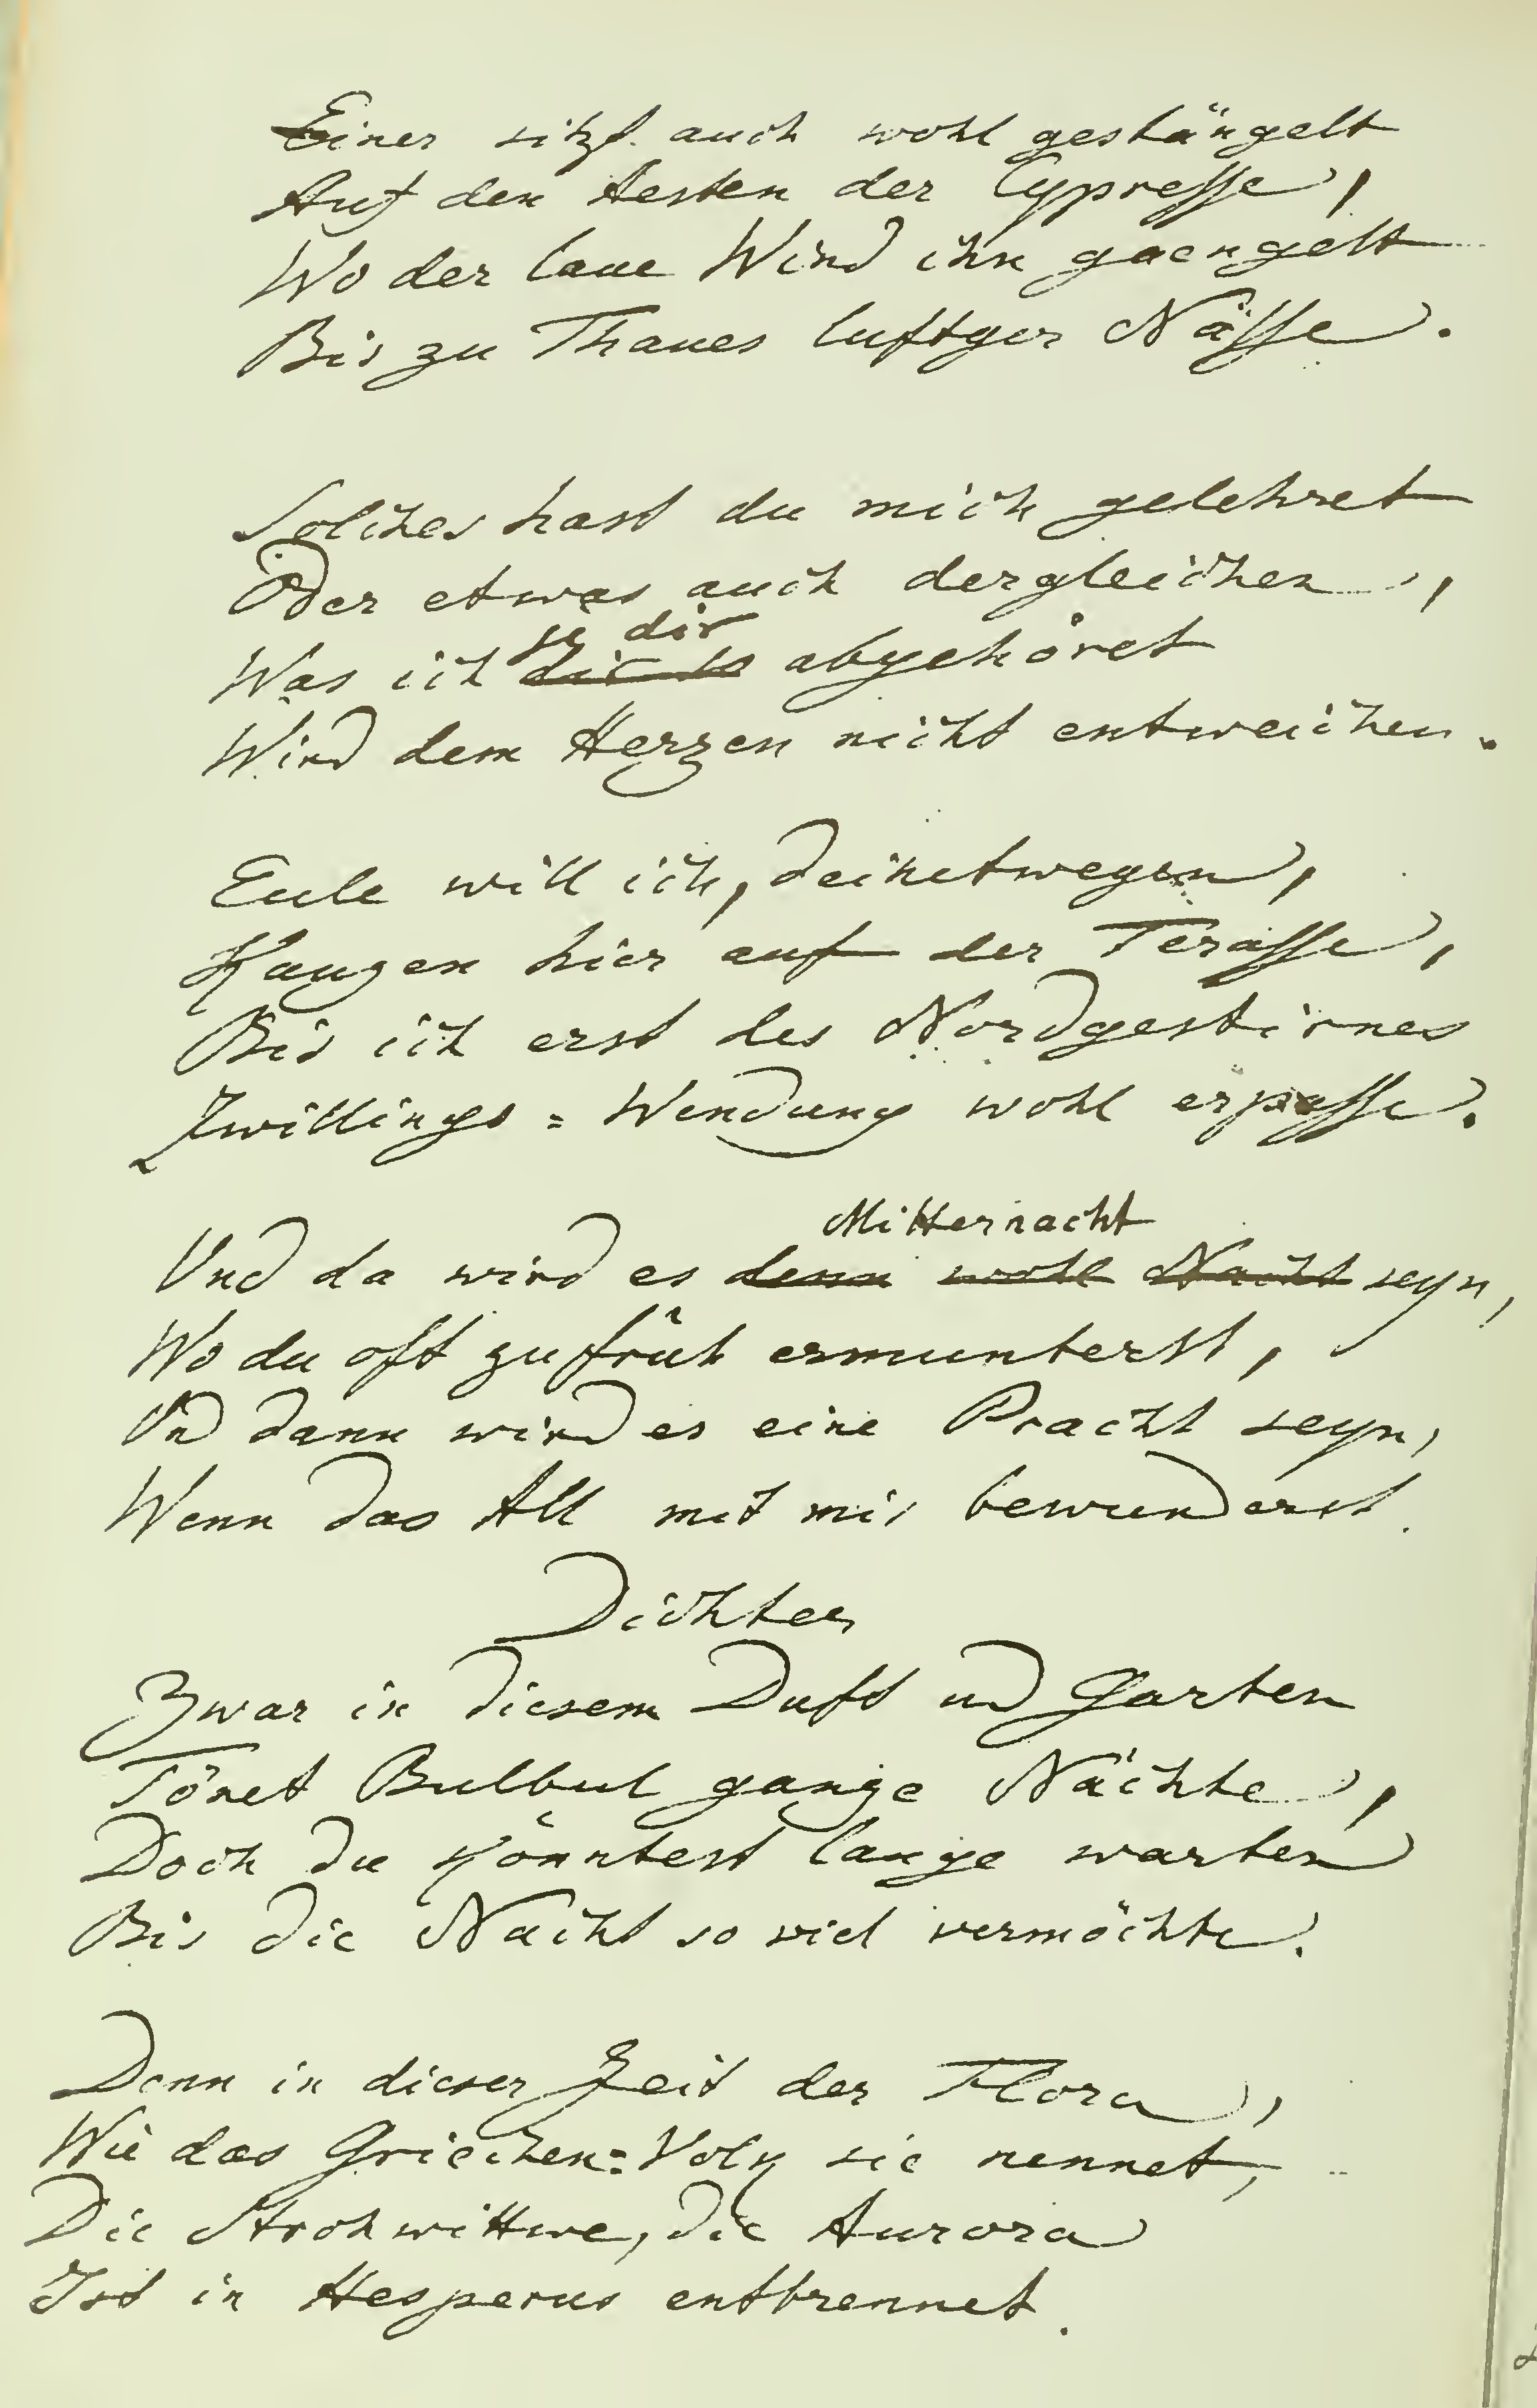 Einer sitzt auch wohl gestängelt
Auf den Aesten der Cypresse,
Wo der laue Wind ihn gaengelt
Bis zu Thaues luftger Nässe.
Solches hast du mich gelehret
Oder etwas auch dergleichen,
je dir
Was ich abgehöret
Wird dem Herzen nicht entweichen.
Eule will ich, deinetwegen,
Kauzen hier auf der Terasse,
Bis ich erst des Nordgestirnes
Zwillings=Wendung wohl erpasse.
Mitternacht
Und da wird es denn wohl Nacht seyn,
Wo du oft zu früh ermunterst,
Und dann wird es eine Pracht seyn,
Wenn das All mit mir bewunderst.
Dichter
Zwar in diesem Duft und Garten
Tönet Bulbul ganze Nächte,
Doch du könntest lange warten
Bis die Nacht so viel vermöchte.
Denn in dieser Zeit der Flora,
Wie das Griechen=Volk sie nennet,
Die Strohwittwe, die Aurora
Ist in Hesperus entbrennet.